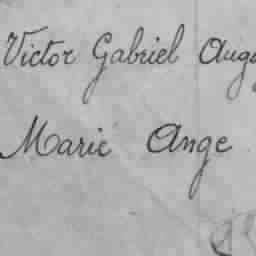 Victor Gabriel
Marie Ange